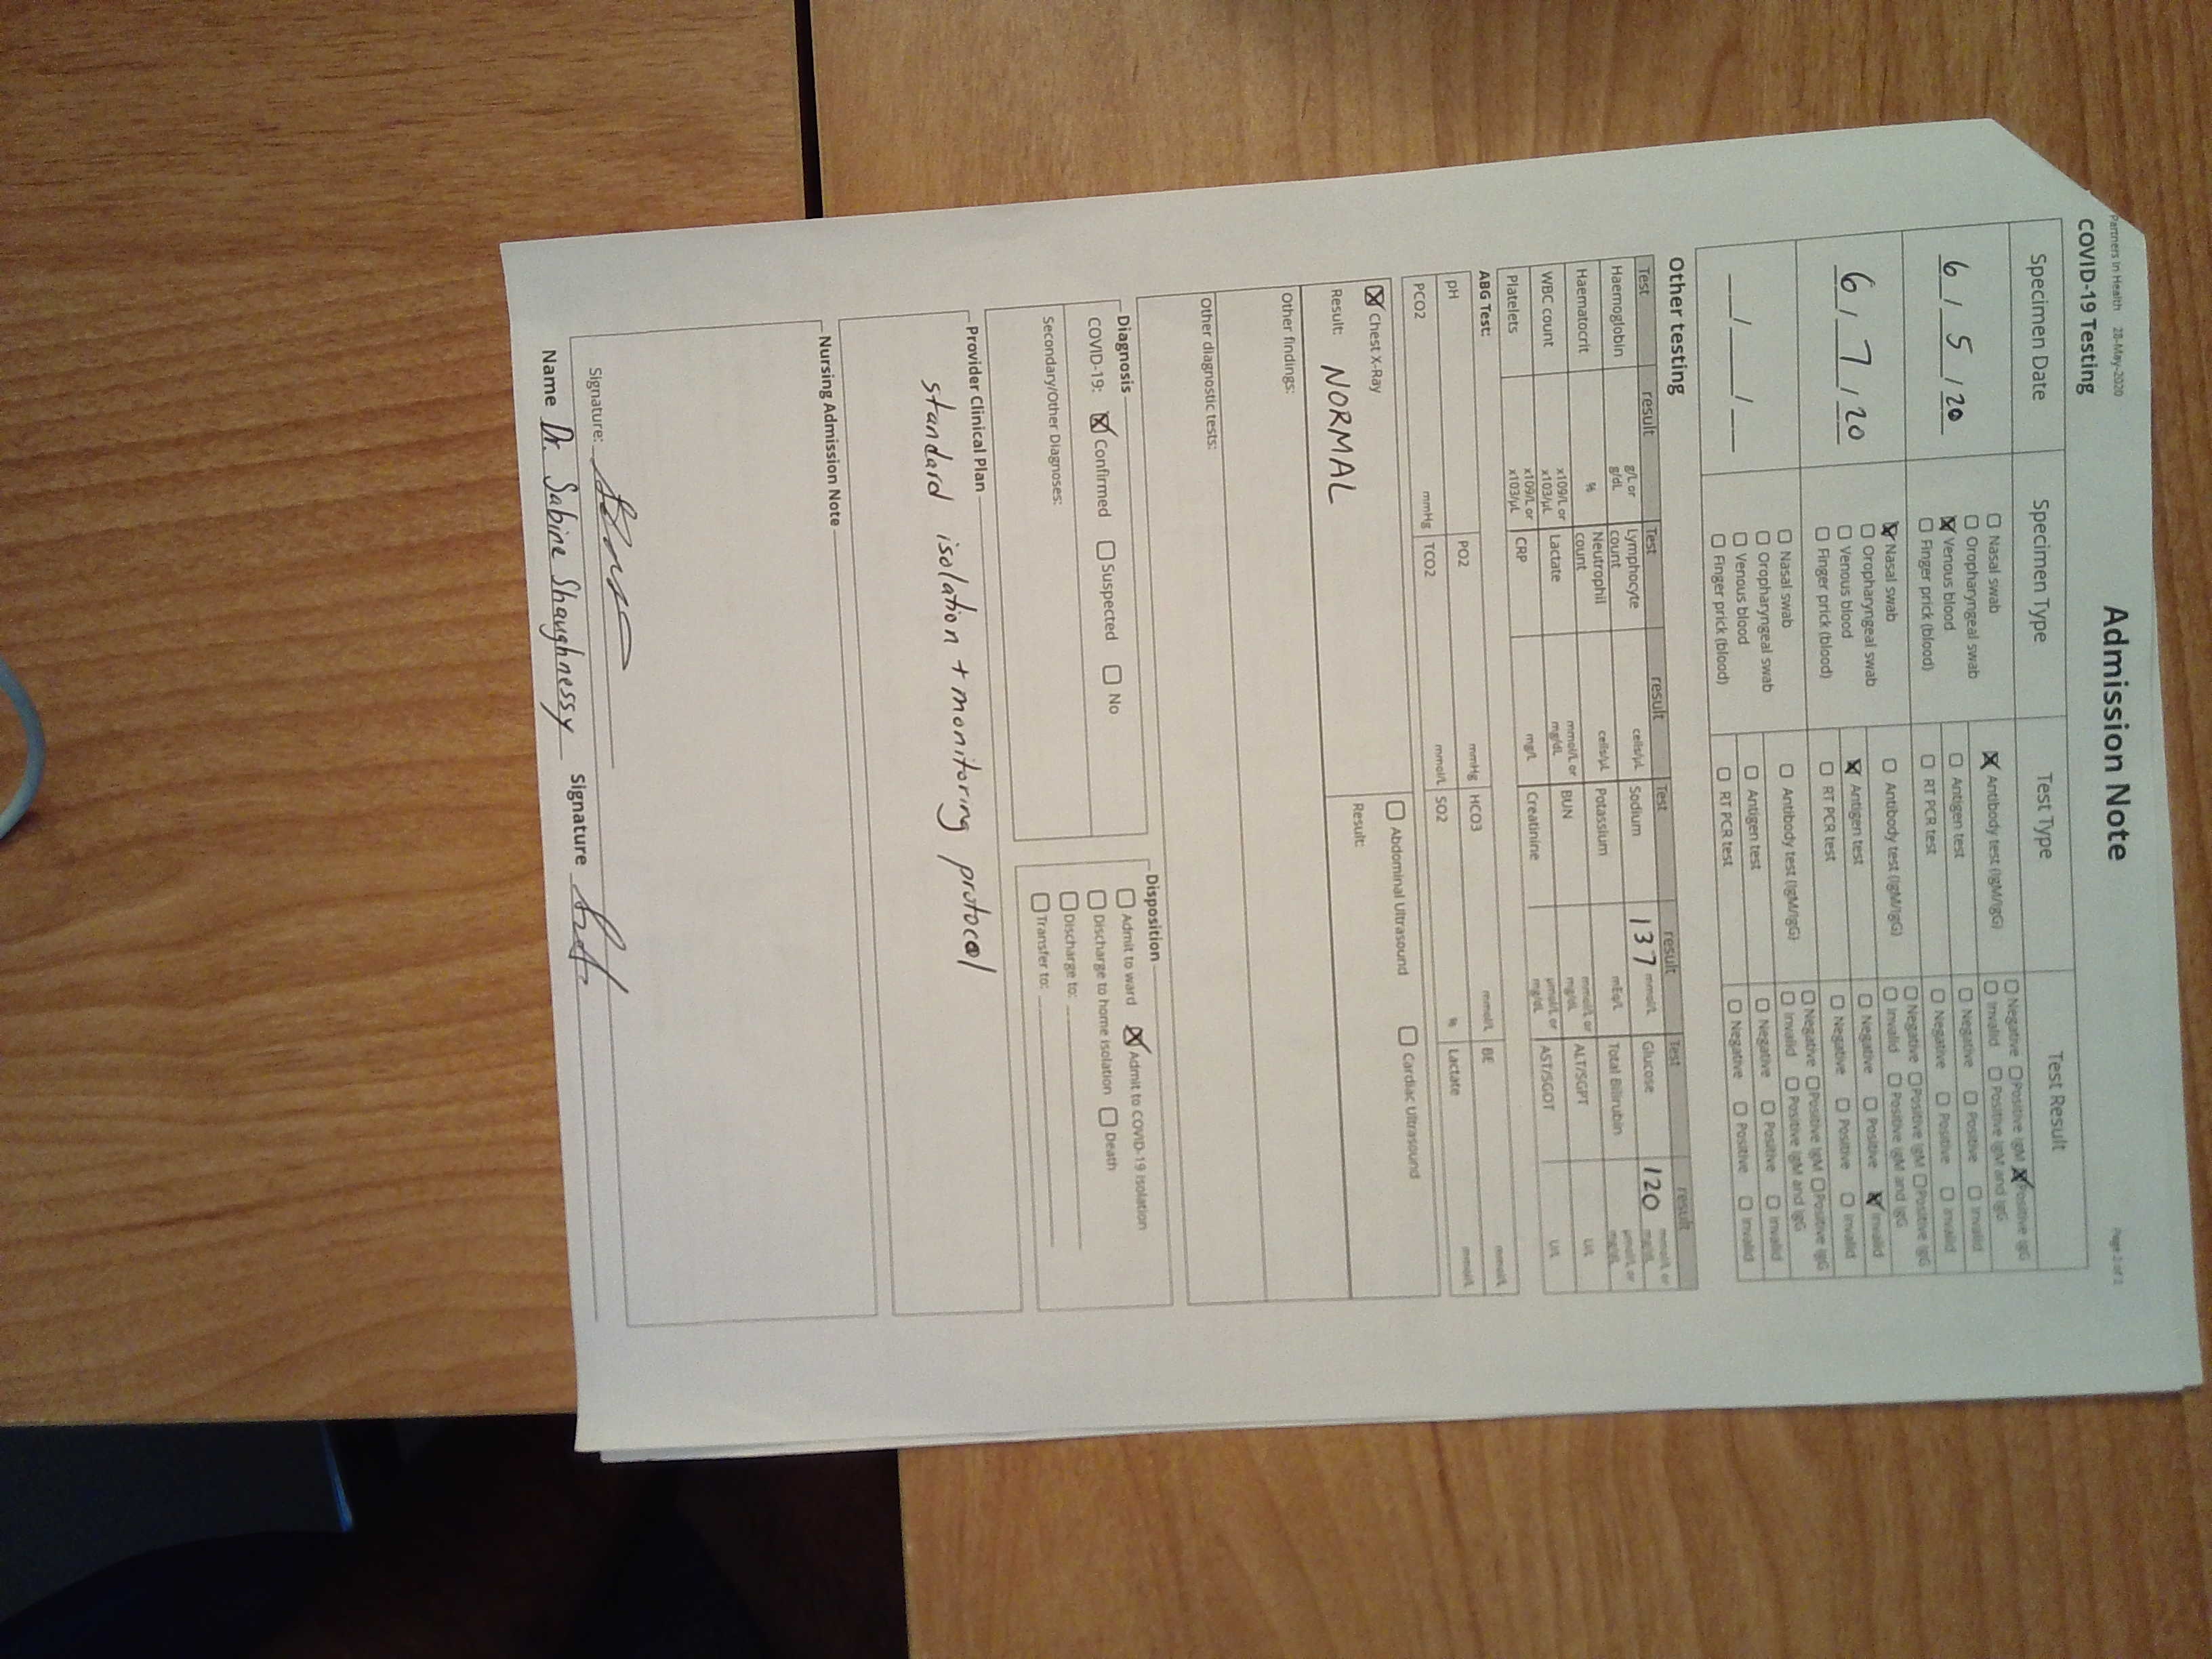 Partners In Health 28-May-2020
Page 2 of 2
Admission Note
COVID-19 Testing
Specimen Date Specimen Type Test Type Test Result
6 / 5 / 20
☐ Nasal swab
☐ Oropharyngeal swab
☒ Venous blood
☐ Finger prick (blood)
☒ Antibody test (IgM/IgG) ☐ Negative ☐ Positive IgM ☒ Positive IgG
☐ Invalid ☐ Positive IgM and IgG
☐ Antigen test ☐ Negative ☐ Positive ☐ Invalid
☐ RT PCR test ☐ Negative ☐ Positive ☐ Invalid
6 / 7 / 20
☒ Nasal swab
☐ Oropharyngeal swab
☐ Venous blood
☐ Finger prick (blood)
☐ Antibody test (IgM/IgG) ☐ Negative ☐ Positive IgM ☐ Positive IgG
☐ Invalid ☐ Positive IgM and IgG
☒ Antigen test ☐ Negative ☐ Positive ☒ Invalid
☐ RT PCR test ☐ Negative ☐ Positive ☐ Invalid
__/__/__
☐ Nasal swab
☐ Oropharyngeal swab
☐ Venous blood
☐ Finger prick (blood)
☐ Antibody test (IgM/IgG) ☐ Negative ☐ Positive IgM ☐ Positive IgG
☐ Invalid ☐ Positive IgM and IgG
☐ Antigen test ☐ Negative ☐ Positive ☐ Invalid
☐ RT PCR test ☐ Negative ☐ Positive ☐ Invalid
Other testing
Test result Test result Test result Test result
Haemoglobin g/L or g/dL Lymphocyte count cells/µL Sodium 137 mmol/L Glucose 120 mmol/L or mg/dL
Haematocrit % Neutrophil count cells/µL Potassium mEq/L Total Bilirubin µmol/L or mg/dL
WBC count x109/L or x103/µL Lactate mmol/L or mg/dL BUN mmol/L or mg/dL ALT/SGPT U/L
Platelets x109/L or x103/µL CRP mg/L Creatinine µmol/L or mg/dL AST/SGOT U/L
ABG Test:
pH PO2 mmHg HCO3 mmol/L BE mmol/L
PCO2 mmHg TCO2 mmol/L SO2 % Lactate mmol/L
☒ Chest X-Ray ☐ Abdominal Ultrasound ☐ Cardiac Ultrasound
Result: NORMAL Result:
Other findings:
Other diagnostic tests:
Diagnosis
COVID-19: ☒ Confirmed ☐ Suspected ☐ No
Secondary/Other Diagnoses:
Disposition
☐ Admit to ward ☒ Admit to COVID-19 isolation
☐ Discharge to home isolation ☐ Death
☐ Discharge to:
☐ Transfer to:
Provider Clinical Plan
standard isolation + monitoring protocol
Nursing Admission Note
Signature:
Name Dr. Sabine Shaughnessy Signature